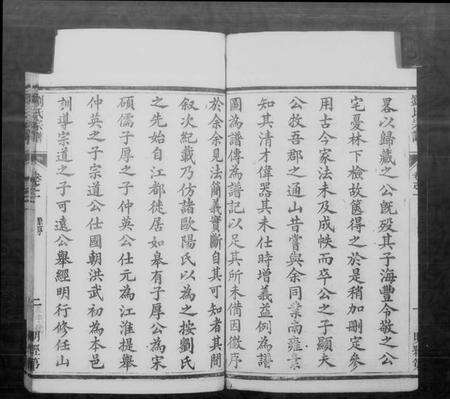 畧以歸藏之公既歿其子海豐令敬之公
宅憂林下檢故篋得之於是稍加刪定參
用古今家法未及成帙而卒公之子顯夫
公牧吾郡之通山昔嘗與余同業南雍素
知其清才偉器其未仕時增義益例為譜
圖為譜傳為譜記以足其所未備因徵序
於余余見法簡義實斷自其可知者其間
叙次紀載乃倣諸歐陽氏以為之按劉氏
之先始自江都徙居如皋有子厚公為宋
碩儒子厚之子仲英公仕元為江淮提舉
仲英之子宗道公仕國朝洪武初為本邑
訓導宗道之子可遠公舉經明行修任山
劉氏家譜
卷之一
譜序
二
明經第